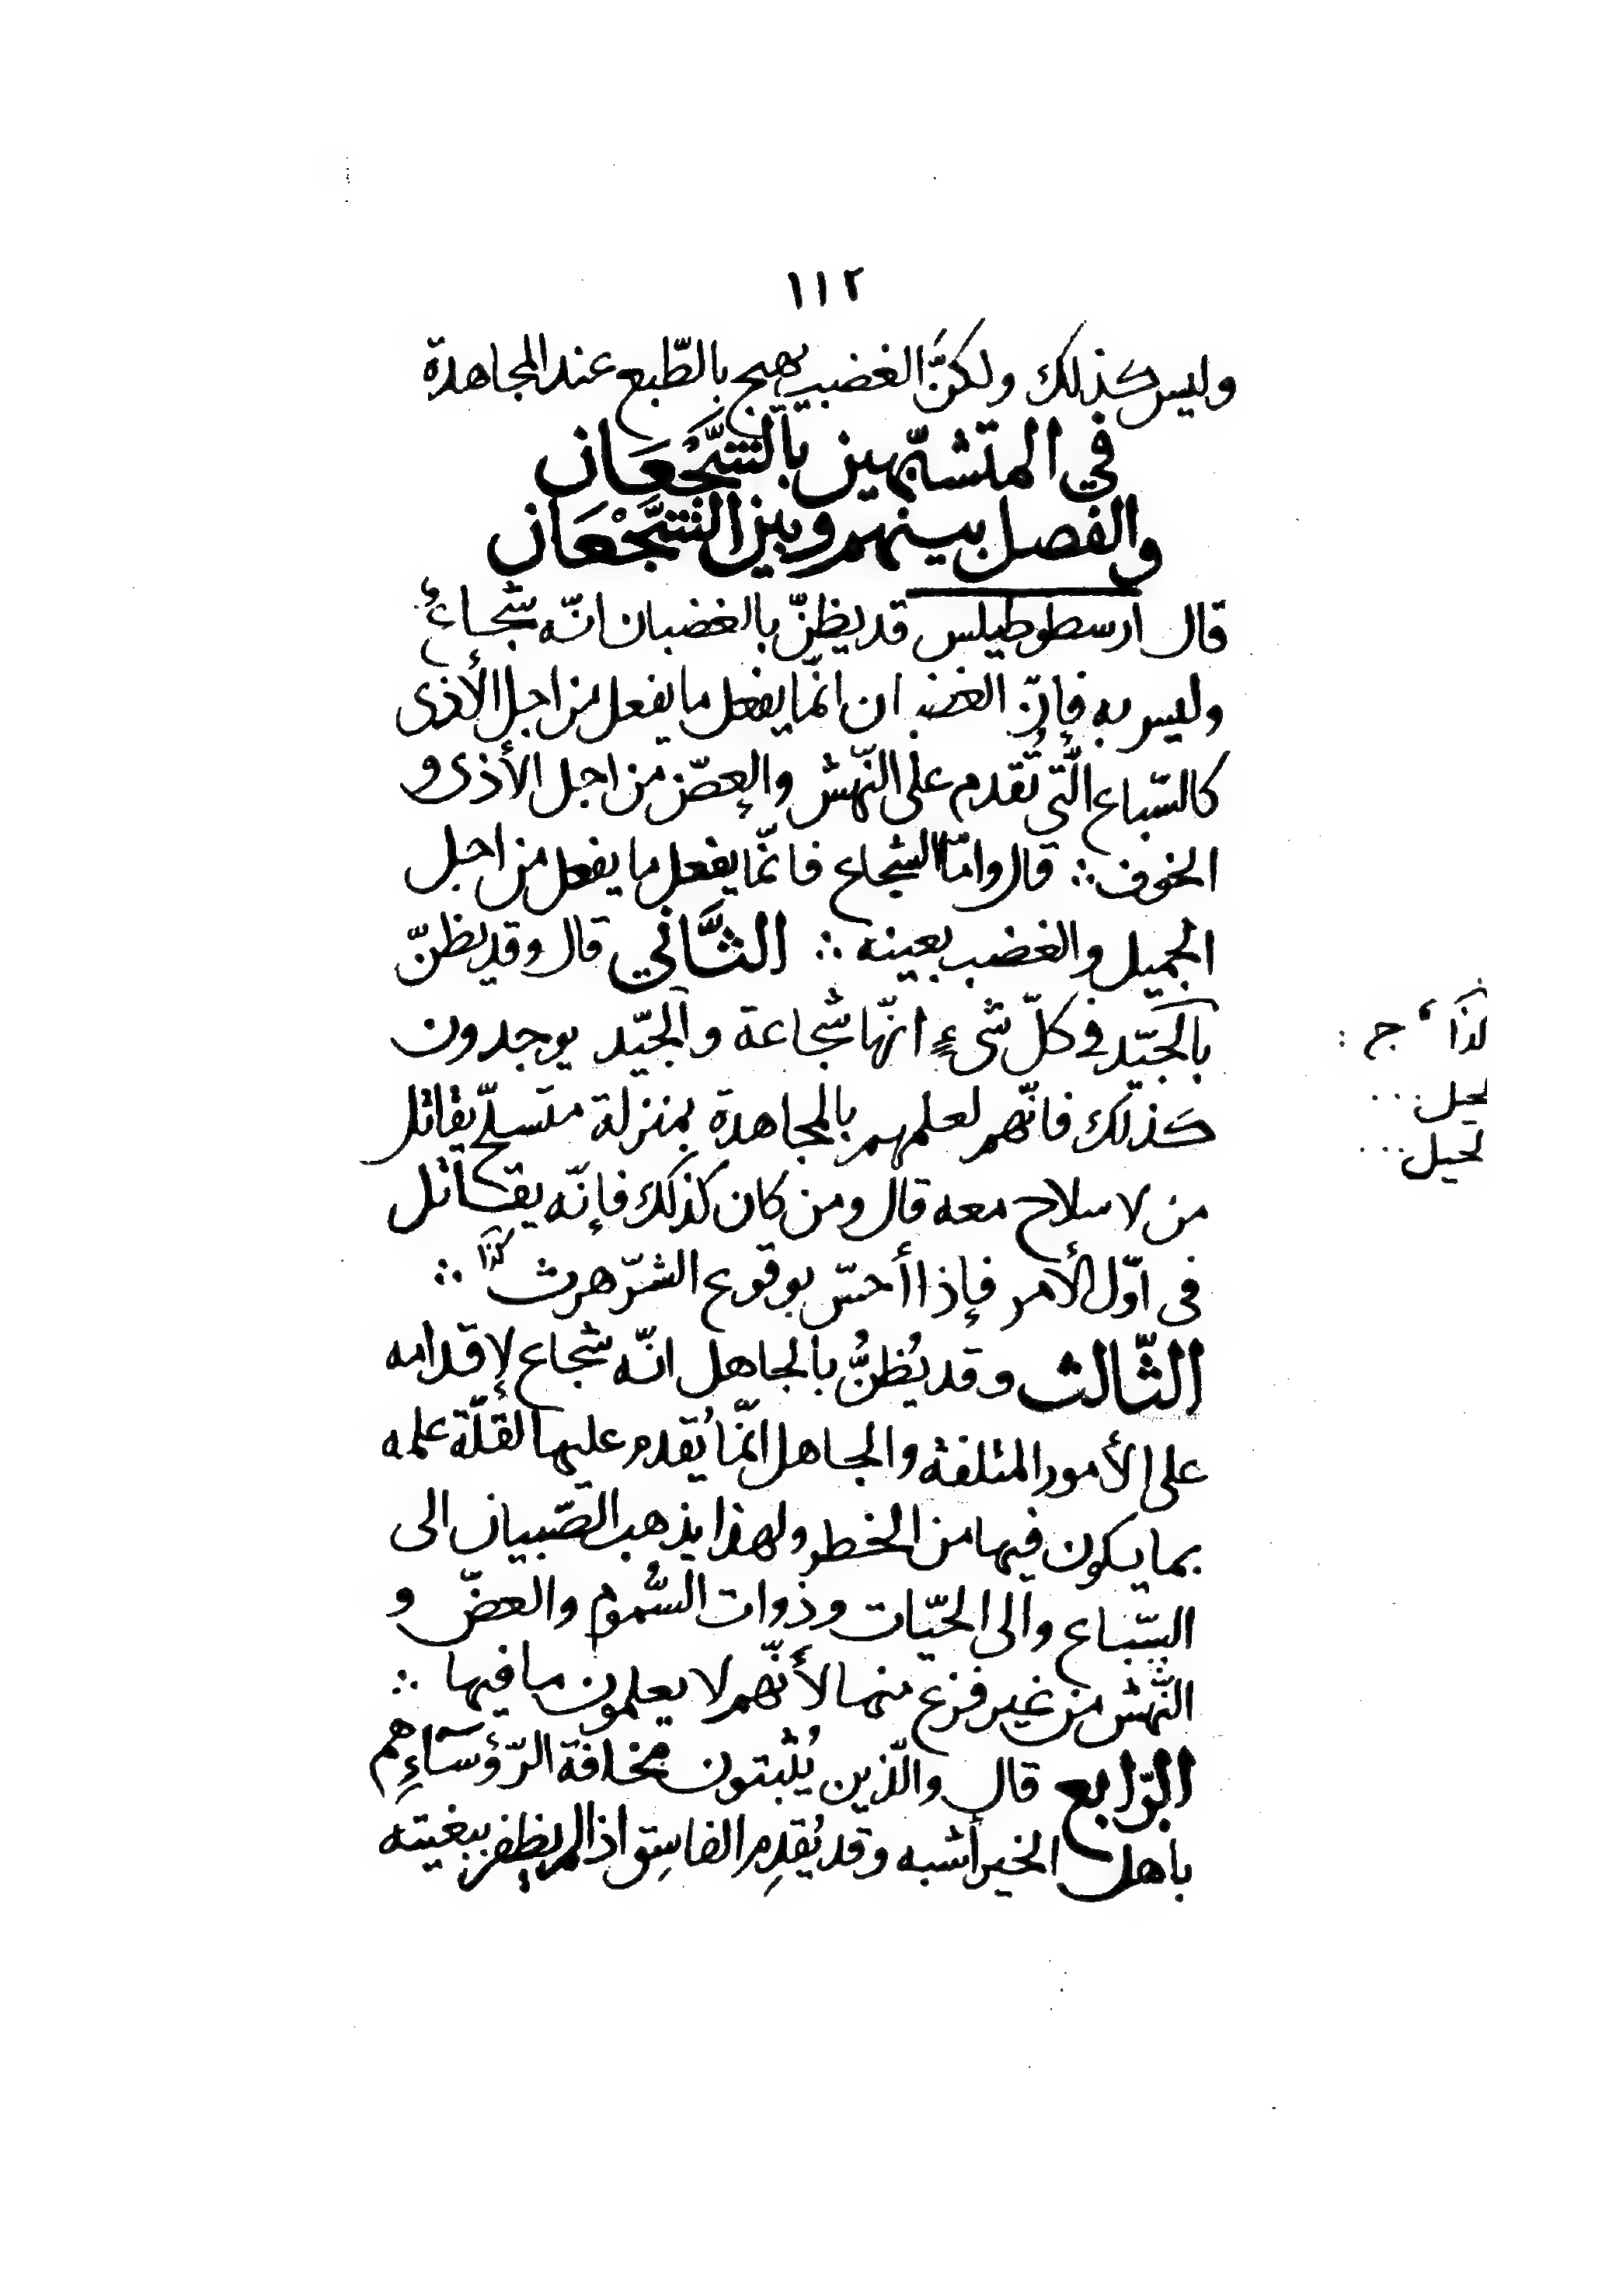 ١١٢
وليس كذلك ولكنَّ الغضب يهيج بالطّبع عند المجاهدة
في المتشبّهين بالشَّجْعَان
والفصل بينهم وبين الشَّجْعَان
قال ارسطوطيلس قد يظنّ بالغضبان انّه شجاعٌ
وليس به فإنّ الغضبان انّما يفعل ما يفعل من اجل الأذى
كالسّباع الّتي تُقدم على النّهش والعضّ من اجل الأذى و
الخوف ∴ قال وامّا الشجاع فانّما يفعل ما يفعل من اجل
الجميل والغضب بعينه ∴ الثَّاني قال وقد يظنّ
بالجيّد في كلّ شىءٍ انّها شجاعة والجيّد يوجدون
كذلك فانّهم لعلمهم بالمجاهدة بمنزلة متسلّح يقاتل
من لا سلاح معه قال ومن كان كذلك فإنّه يقاتل
فى اوّل الأمر فإذا أحسّ بوقوع الشرّ هرث كذا ∴
الثّالث وقد يُظنُّ بالجاهل انّه شجاع لإقدامه
على الأمور المتلفة والجاهل انّما يُقدم عليها لقلّة علمه
بما يكون فيها من الخطر ولهذا يذهب الصّبيان الى
السّباع والى الحيّات وذوات السُّموم والعضّ و
النّهش من غير فزع منها لأنّهم لا يعلمون ما فيها ∴
الرّابع قال والّذين يُثبتون مخافة الرّؤسآءِ هم
باهل الخير أشبه وقد يُقدِم الفاسِق اذا لم يظفر ببغيته
كذا ، ج :
لحيل ...
لحيل ...